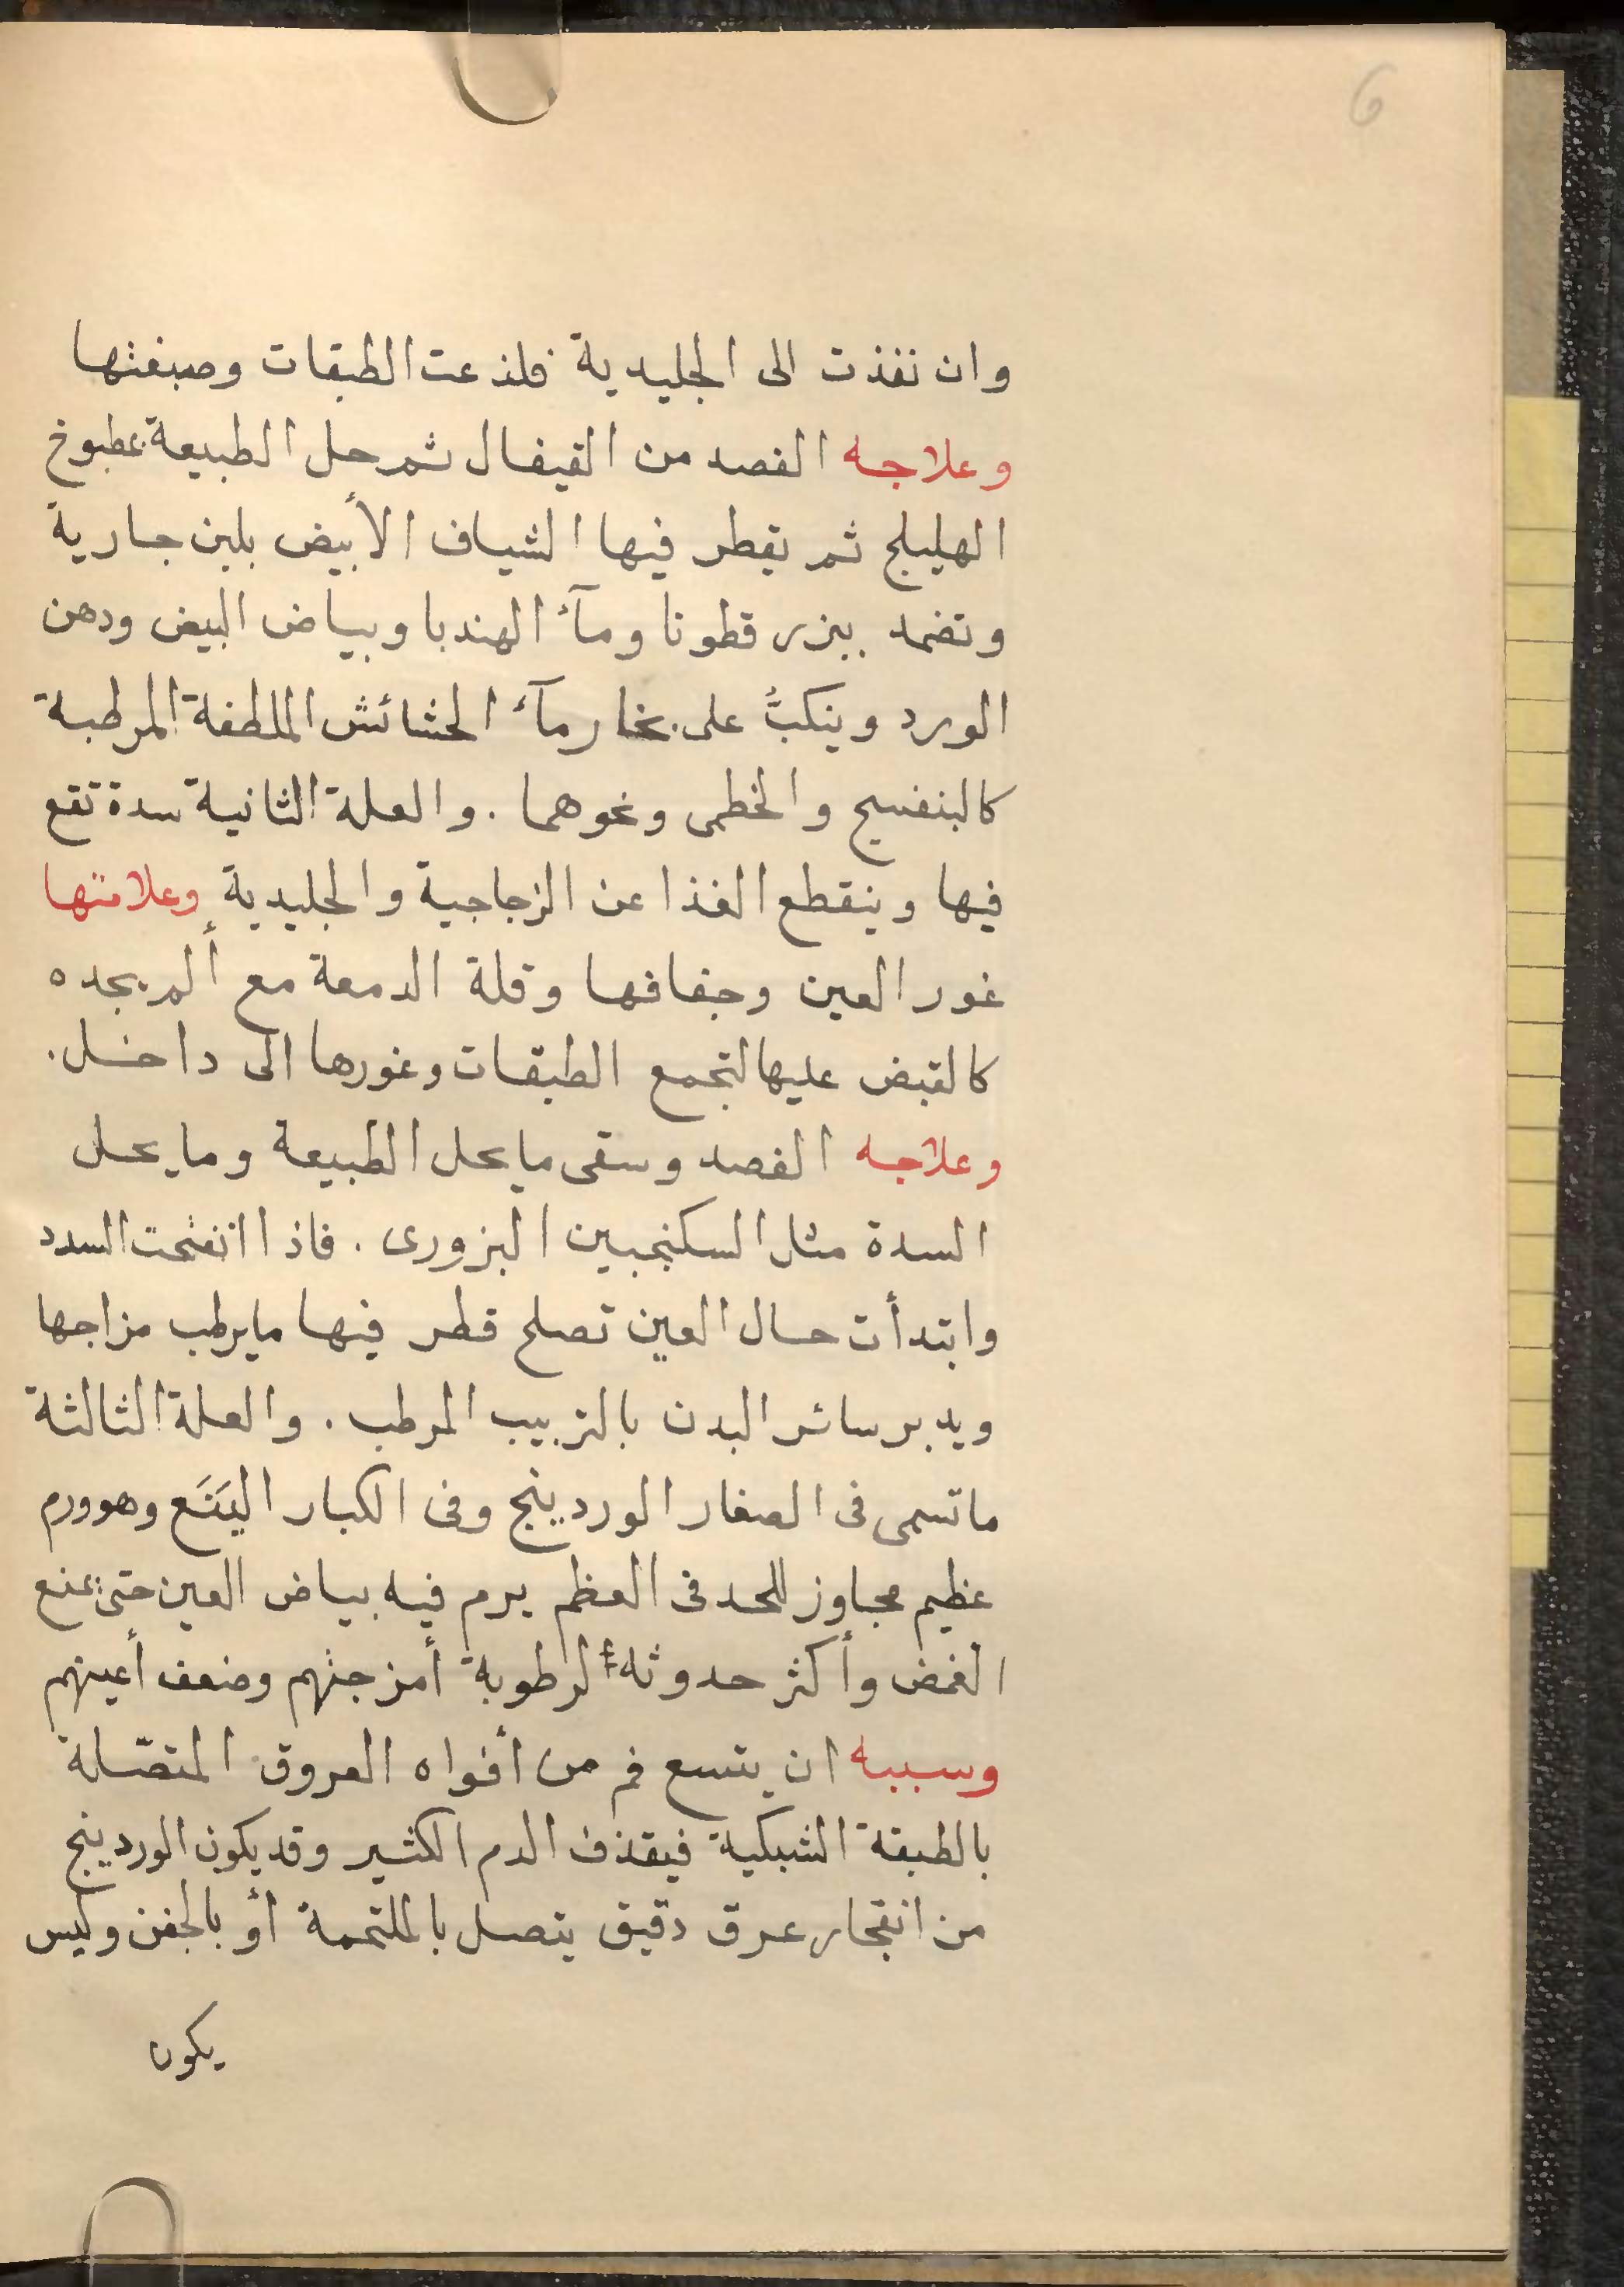 6
وان نفذت الى الجليدية فلذعت الطبقات وصبغتها
وعلاجه الفصد من القيفال ثم حل الطبيعة بمطبوخ
الهليلج ثم يقطر فيها الشياف الأبيض بلبن جارية
وتضمد ببزر قطونا ومآء الهندبا وبياض البيض ودهن
الورد وينكبُّ على بخار مآء الحشائش الملطفة المرطبة
كالبنفسج والخطمى ونحوهما . والعلة الثانية سدة تقع
فيها وينقطع الغذا عن الزجاجية والجليدية وعلامتها
غور العين وجفافها وقلة الدمعة مع ألم يجده
كالقبض عليها لتجمع الطبقات وغورها الى داخل .
وعلاجه الفصد وسقى ما يحل الطبيعة وما يحل
السدة مثل السكنجبين البزورى . فاذا انفتحت السدد
وابتدأت حال العين تصلح قطر فيها ما يرطب مزاجها
ويدبر سائر البدن بالتربيب المرطب . والعلة الثالثة
ما تسمى فى الصغار الوردينج وفى الكبار اليَنَع وهو ورم
عظيم مجاوز للحد فى العظم يرم فيه بياض العين حتى يمنع
الغمض وأكثر حدوثه لرطوبة أمزجتهم وضعف أعينهم
وسببه ان يتسع فم من أفواه العروق المتصّلة
بالطبقة الشبكية فيقذف الدم الكثير وقد يكون الوردينج
من انفجار عرق دقيق يتصل بالملتحمة أو بالجفن وليس
يكون